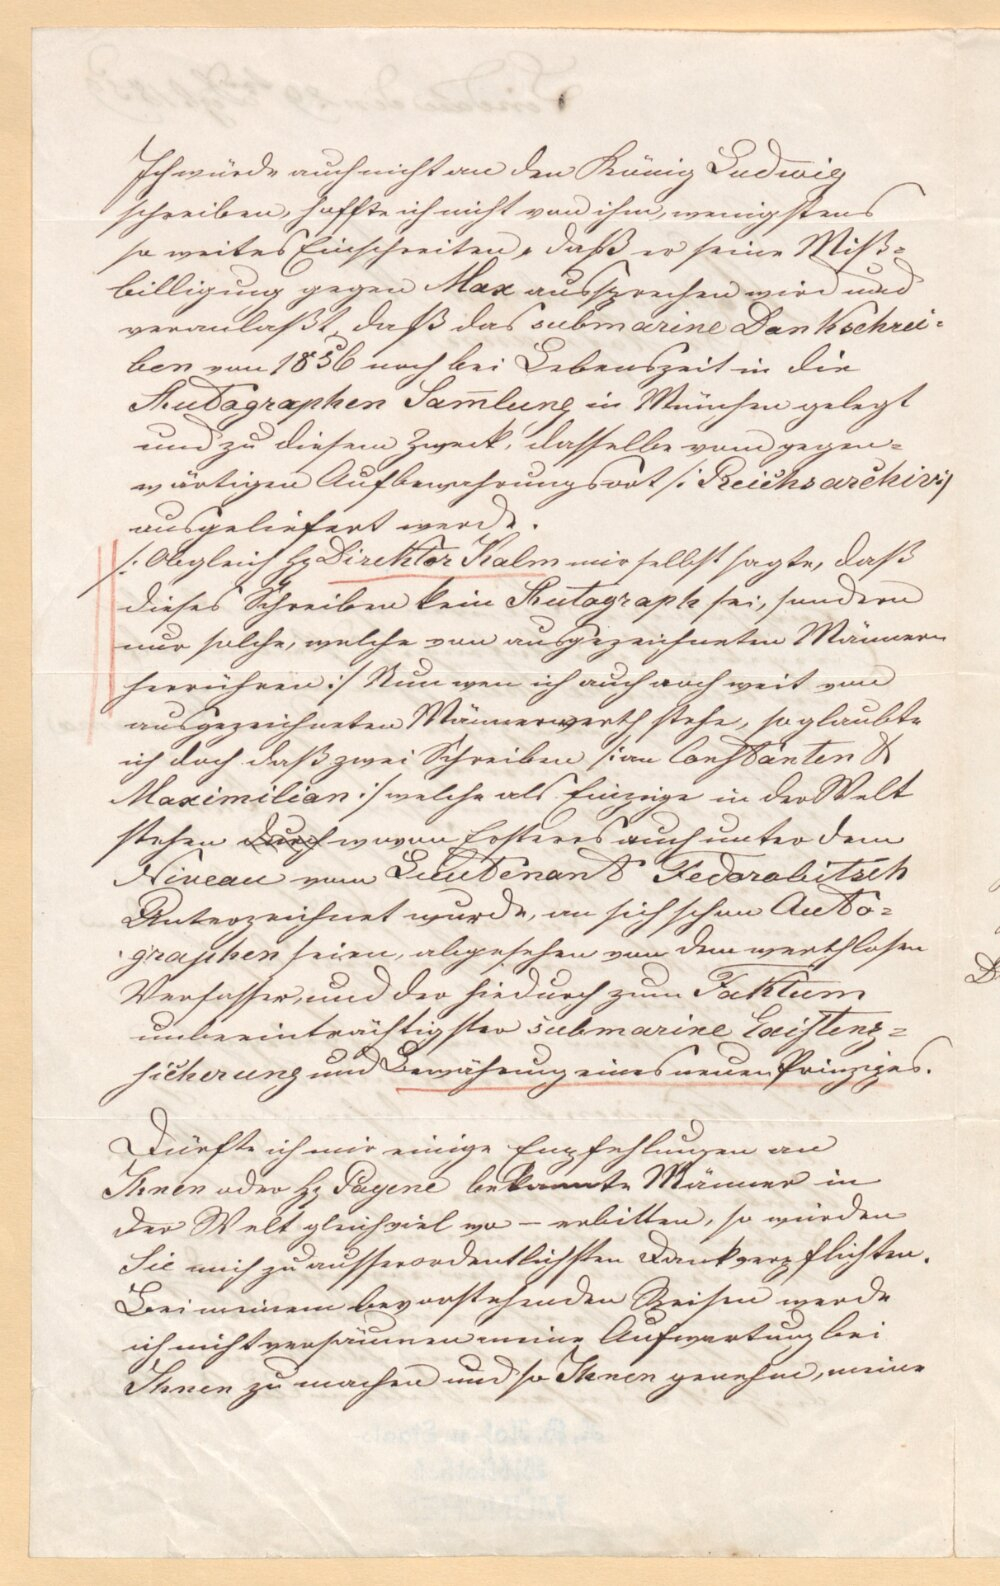 Ich würde auch nicht an den König Ludwig
schreiben, hoffte ich nicht von ihm, wenigstens
so weites Einschreiten, daß er seine Miß=
billigung gegen Max aussprechen wird und
veranlaßt, daß das submarine Dankschrei=
ben von 1856 noch bei Lebenszeit in die
Autographen Sam̅lung in München gelegt
und zu diesem Zweck, dasselbe vom gegen=
wärtigen Aufbewahrungsort /: Reichsarchiv :/
ausgeliefert werde.
/: Obgleich Hr Direktor Halm mir selbst sagte, daß
dieses Schreiben kein Autograph sei, sondern
nur solche, welche von ausgezeichneten Männern
herrühren :/ Nun wen ich auch noch weit von
ausgezeichneten Männerwerth stehe, so glaubte
ich doch daß zwei Schreiben /: an Constanten &
Maximilian :/ welche als Einzige in der Welt
stehen durch wovon Ersteres auch unter dem
Niveau vom Lieutenant Fedorobitsch
Unterzeichnet wurde, an sich schon Auto=
graphen seien, abgesehen von dem werthlosen
Verfasser, und der hiedurch zum Faktum
unbeeinträchtigster submarine Existenz=
sicherung und Bewährung eines neuen Prinzipes.
Dürfte ich mir einige Empfehlungen an
Ihnen oder Hr bekannte Männer in
der Welt gleichviel wo – erbitten, so würden
Sie mich zu ausserordentlichsten Dank verpflichten.
Bei meinem bevorstehenden Reisen werde
ich nicht versäumen meine Aufwartung bei
Ihnen zu machen und so Ihnen genehm, meine